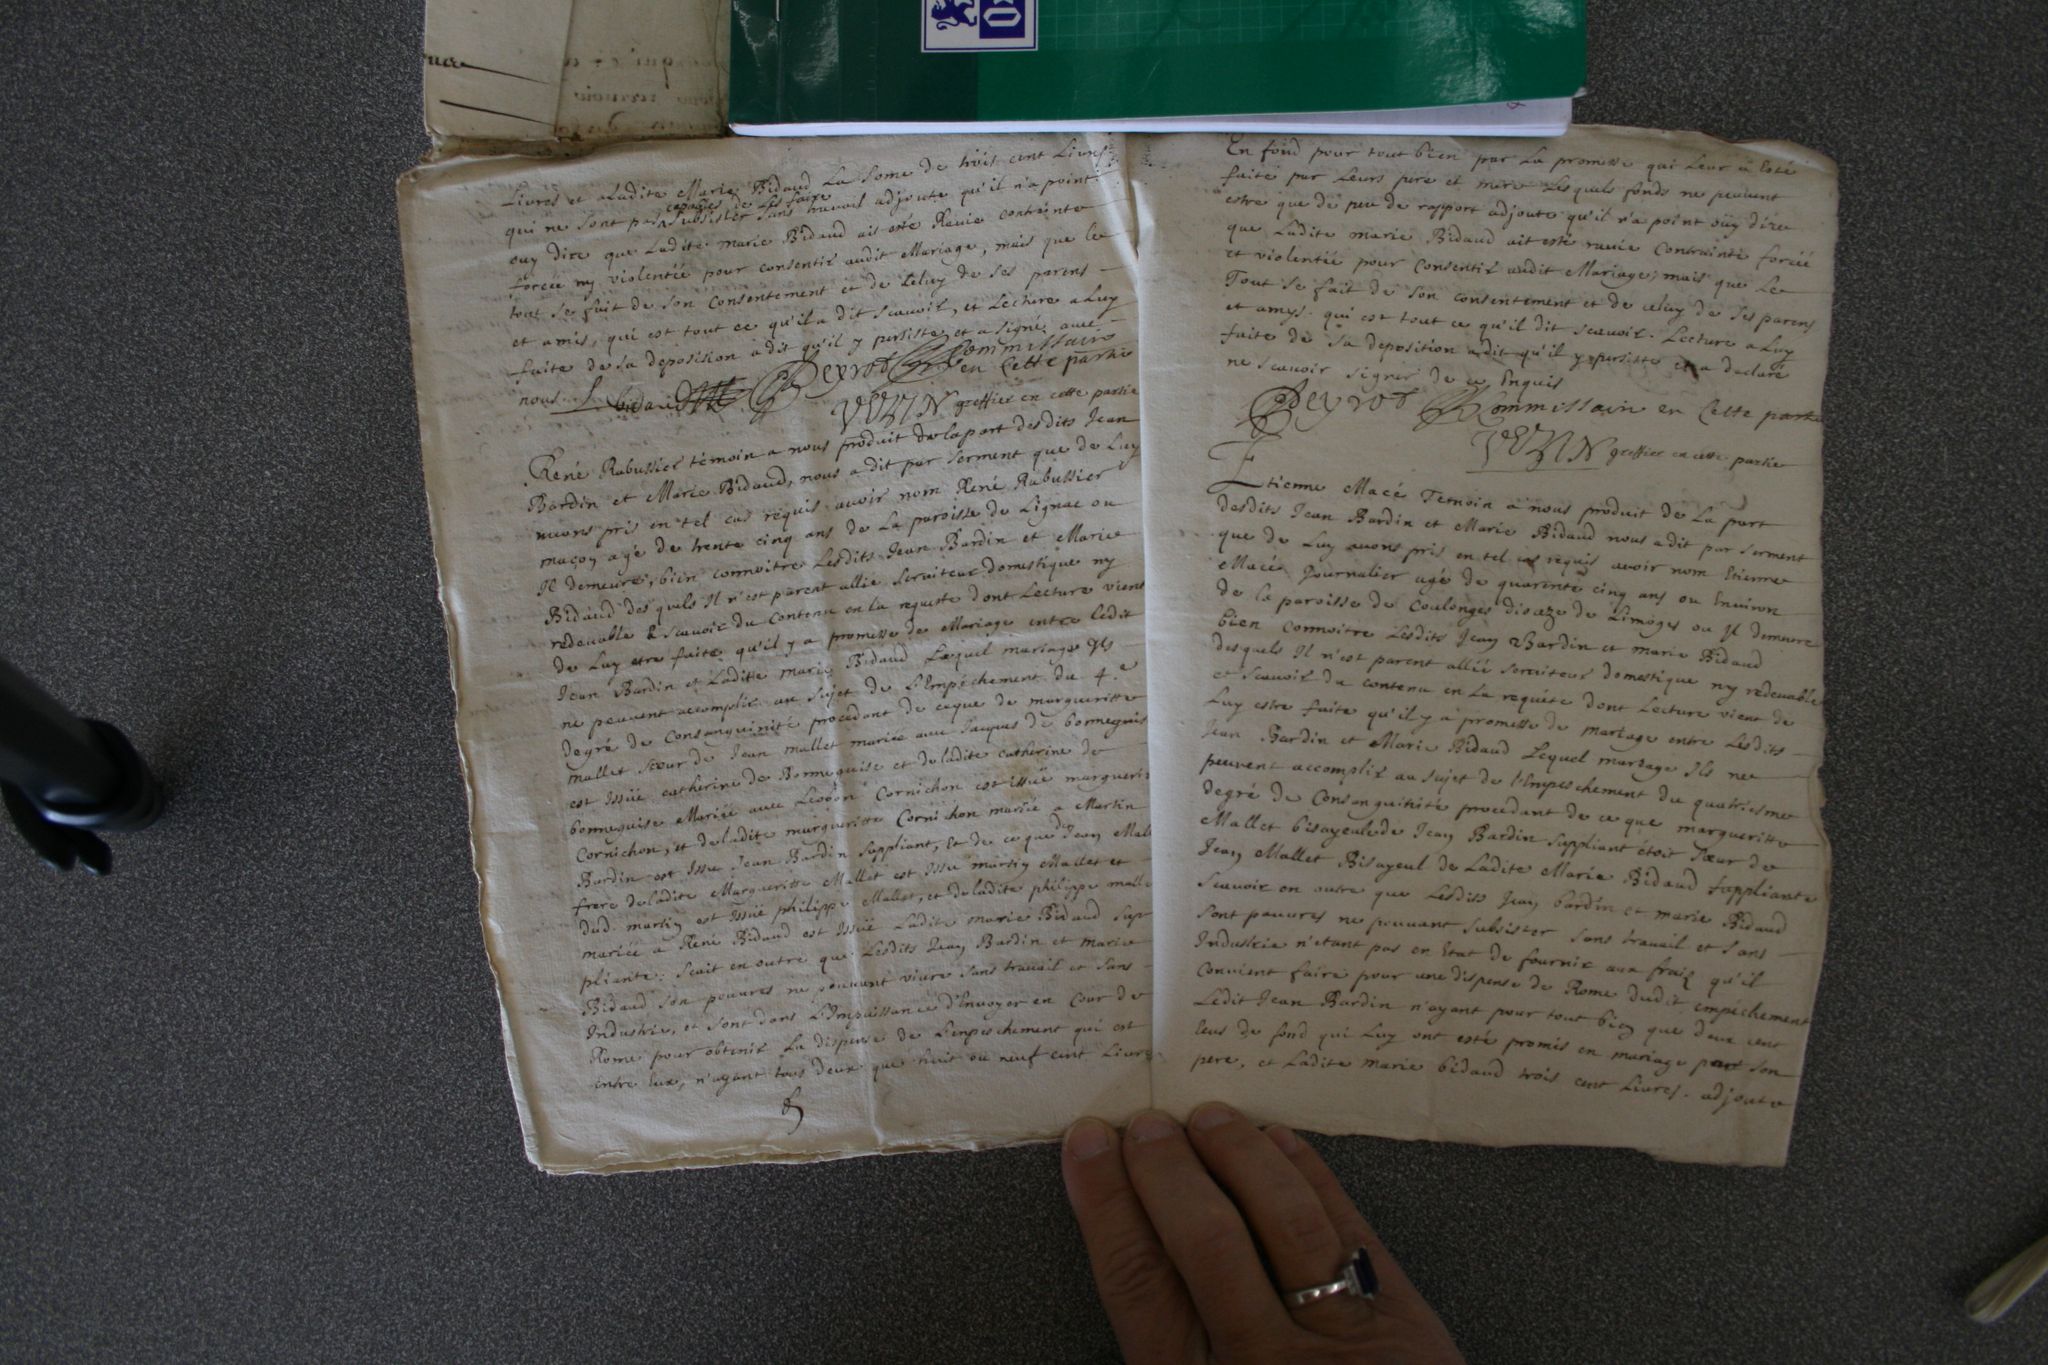 Livres et a Ladite Marie Bidaud La Some de trois cent Livres
qui ne Sont pas capables de Les faire Subsister Sans travail adjoute qu'il n'a point
ouy dire que Ladite marie Bidaud ait esté Ravie contrainte
forcée ny violentée pour consentir audit Mariage, mais que le
tout se fait de son Consentement et de Celuy de ses parens
et amis, qui est tout ce qu'il a dit scavoir, et Lecture a Luy
faite de sa deposition a dit qu'il y persiste et a signé avec
nous. L. bidaud Peyrot Commissaire
en Cette partie
VEZIN greffier en cette partie
René Rabussier témoin a nous produit de la part desdits Jean
Bardin et Marie Bidaud, nous a dit par serment que de Luy
avons pris en tel cas requis avoir nom René Rabussier
maçon agé de trente cinq ans de La paroisse de Lignac ou
Il demeure, bien connoitre Lesdits Jean Bardin et Marie
Bidaud des quels Il n'est parent allié serviteur domestique ny
redevable & scavoir du contenu en la requeste dont Lecture vient
de Luy etre faite qu'il y a promesse de Mariage entre ledit
Jean Bardin et Ladite marie Bidaud Lequel mariage Ils
ne peuvent accomplir au sujet de L'Empéchement du 4.e
degré de Consanguinité procédant de ceque de margueritte
mallet sœur de Jean mallet mariée avec Jacques de bonneguise
est Issüe catherine de Bonneguise et de ladite catherine de
bonneguise Mariée avec Cornichon est issüe marguerite
Cornichon, et de ladite margueritte Cornichon mariée a Martin
Bardin est Issu Jean Bardin Suppliant, Et de ce que de Jean Mallet
frere de ladite Margueritte Mallet est Issu martin Mallet et
dud. martin est Issüe philippe Mallet, et de ladite philippe mallet
mariée a René Bidaud est Issüe Ladite marie Bidaud Sup-
pliante. Scait en outre que Lesdits Jean Bardin et marie
Bidaud son pauvres ne pouvant vivre sans travail et sans
Industrie, et sont dans L'Impuissance d'Envoyer en Cour de
Rome pour obtenir La dispense de L'enpeschement qui est
entre Eux, n'ayant tous deux que huit ou neuf cent Livres
En fond pour tout bien par La promesse qui Leur a Esté
faite par Leurs pere et mere Lesquels fonds ne peuvent
estre que de peu de rapport adjoute qu'il n'a point oüy dire
que Ladite marie Bidaud ait esté ravie Contrainte forcée
et violentée pour Consentir audit Mariage, mais que Le
Tout se fait de son consentement et de celuy de ses parens
et amys. qui est tout ce qu'il dit scavoir. Lecture a Luy
faite de sa deposition a dit qu'il y persiste et a declaré
ne scavoir signer de ce Enquis
Peyrot Commissaire en Cette partie
VEZIN greffier en cette partie
Etienne Macé Temoin a nous produit de La part
desdits Jean Bardin et Marie Bidaud nous a dit par serment
que de Luy avons pris en tel cas requis avoir nom Etienne
Macé Journalier agé de quarente cinq ans ou Environ
de la paroisse de Coulonges diocaze de Limoges ou Il demeure
bien connoitre Lesdits Jean Bardin et marie Bidaud
desquels Il n'est parent allié serviteur domestique ny redevable
et Scavoir du contenu en La requéte dont Lecture vient de
Luy estre faite qu'il y a promesse de mariage entre Lesdits
Jean Bardin et Marie Bidaud Lequel mariage Ils ne
peuvent accomplir au sujet de l'Empeschement du quatriesme
degré de Consanguinité procédant de ce que margueritte
Mallet bisayeule de Jean Bardin Suppliant étoit sœur de
Jean Mallet Bisayeul de Ladite Marie Bidaud Suppliante
Scavoir en outre que Lesdits Jean bardin et marie Bidaud
Sont pauvres ne pouvant subsister sans travail et sans
Industrie n'etant pas en Etat de fournir aux fraiz qu'il
Convient faire pour une dispense de Rome dudit empéchement
Ledit Jean Bardin n'ayant pour tout bien que deux cent
Ecus de fond qui Luy ont esté promis en mariage par son
pere, et Ladite marie bidaud trois cent Livres. adjoute